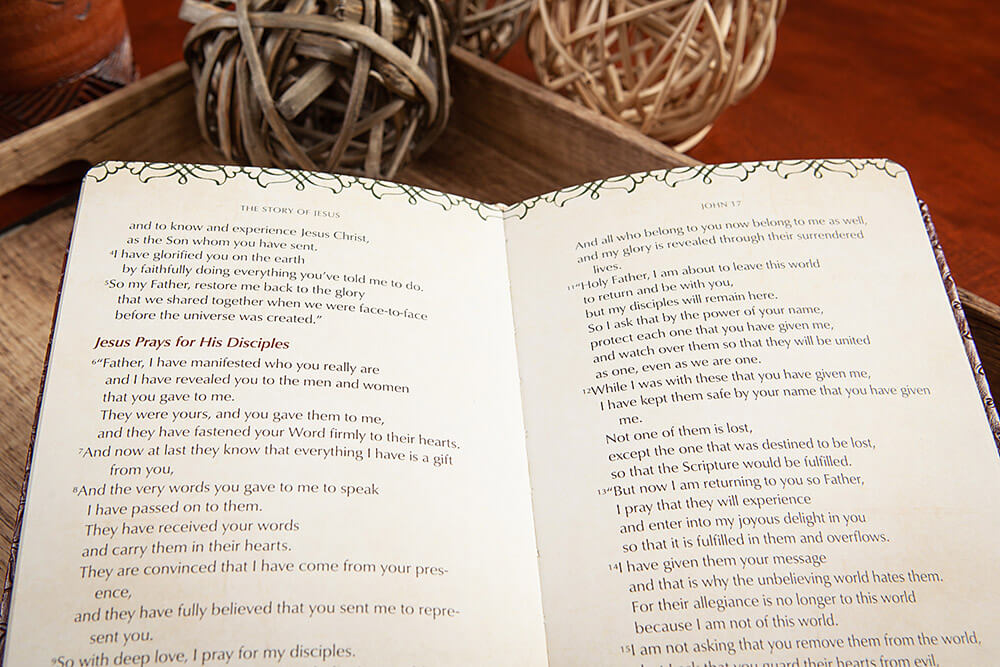 THE STORY OF JESUS
and to know and experience Jesus Christ,
as the Son whom you have sent.
⁴I have glorified you on the earth
by faithfully doing everything you've told me to do.
⁵So my Father, restore me back to the glory
that we shared together when we were face-to-face
before the universe was created."
Jesus Prays for His Disciples
⁶"Father, I have manifested who you really are
and I have revealed you to the men and women
that you gave to me.
They were yours, and you gave them to me,
and they have fastened your Word firmly to their hearts.
⁷And now at last they know that everything I have is a gift
from you,
⁸And the very words you gave to me to speak
I have passed on to them.
They have received your words
and carry them in their hearts.
They are convinced that I have come from your pres-
ence,
and they have fully believed that you sent me to repre-
sent you.
⁹So with deep love, I pray for my disciples.
JOHN 17
And all who belong to you now belong to me as well,
and my glory is revealed through their surrendered
lives.
¹¹"Holy Father, I am about to leave this world
to return and be with you,
but my disciples will remain here.
So I ask that by the power of your name,
protect each one that you have given me,
and watch over them so that they will be united
as one, even as we are one.
¹²While I was with these that you have given me,
I have kept them safe by your name that you have given
me.
Not one of them is lost,
except the one that was destined to be lost,
so that the Scripture would be fulfilled.
¹³"But now I am returning to you so Father,
I pray that they will experience
and enter into my joyous delight in you
so that it is fulfilled in them and overflows.
¹⁴I have given them your message
and that is why the unbelieving world hates them.
For their allegiance is no longer to this world
because I am not of this world.
¹⁵I am not asking that you remove them from the world,
ask that you guard their hearts from evil